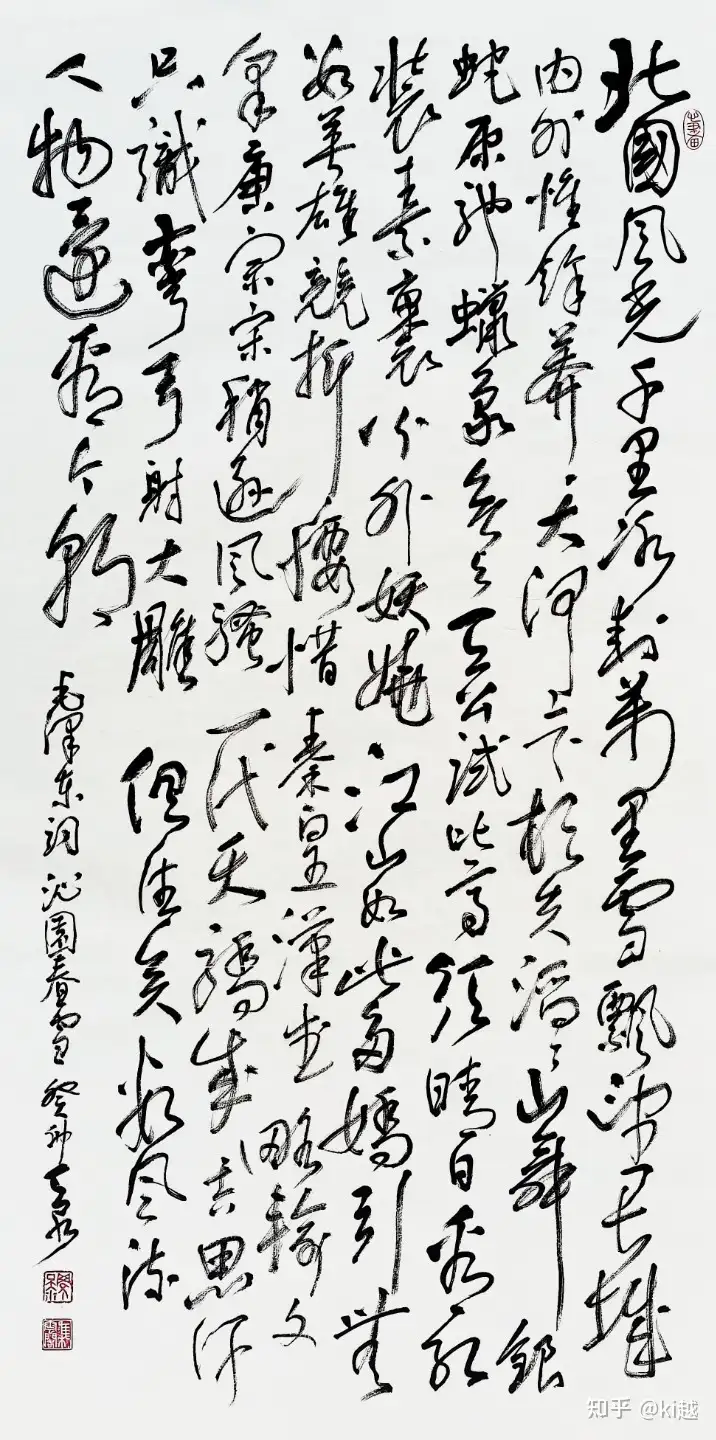 北國风光千里冰封萬里雪飄望长城
内外惟餘莽々大河上下頓失滔々山舞銀
蛇原驰蠟象欲与天公試比高須晴日看红
装素裹分外妖嬈江山如此多嬌引無
数英雄競折腰惜秦皇漢武略输文
采唐宗宋稍逊风騷一代天驕成吉思汗
只識彎弓射大雕俱往矣数风流
人物還看今朝
毛澤东词沁園春雪癸卯
知乎 @ki越